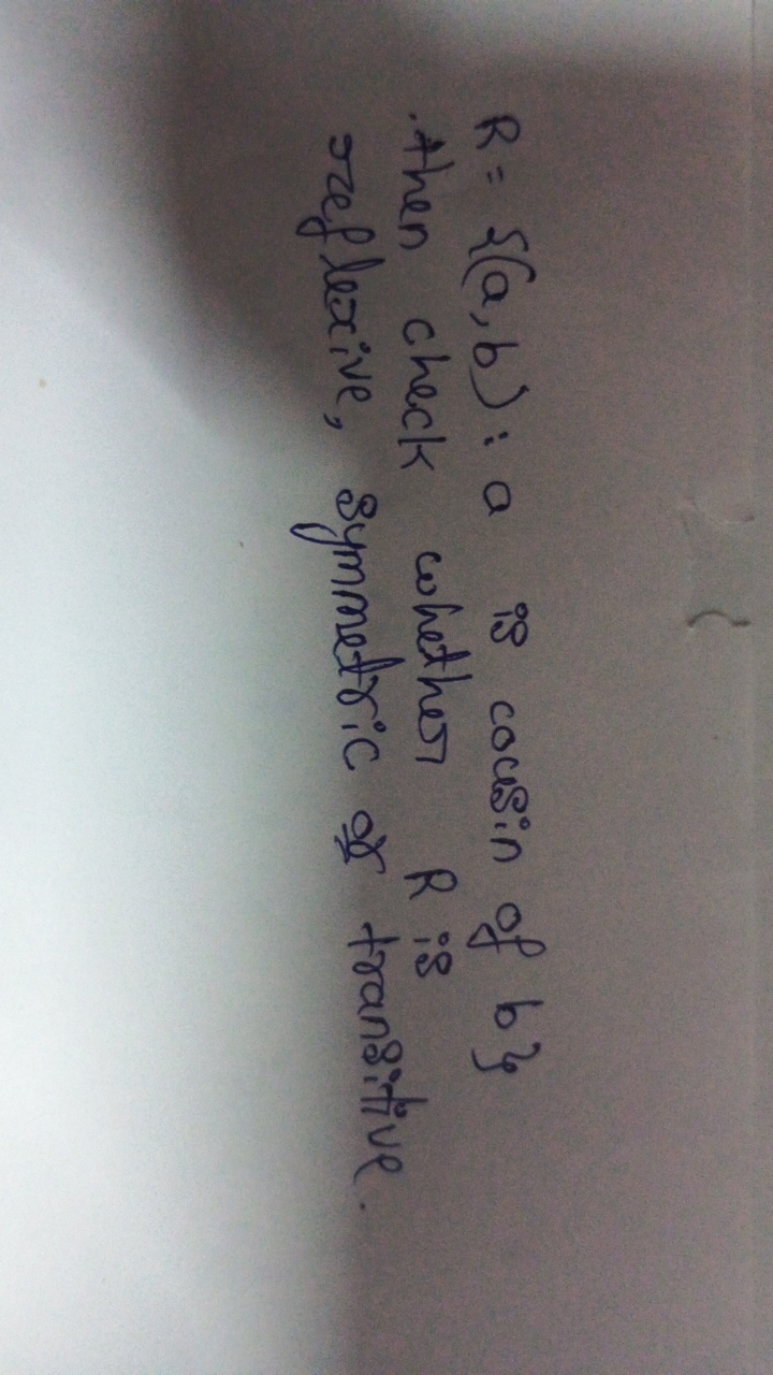 R = {(a,b): a is cousin of b}
.then check whether R is
reflexive, symmetric or transitive.